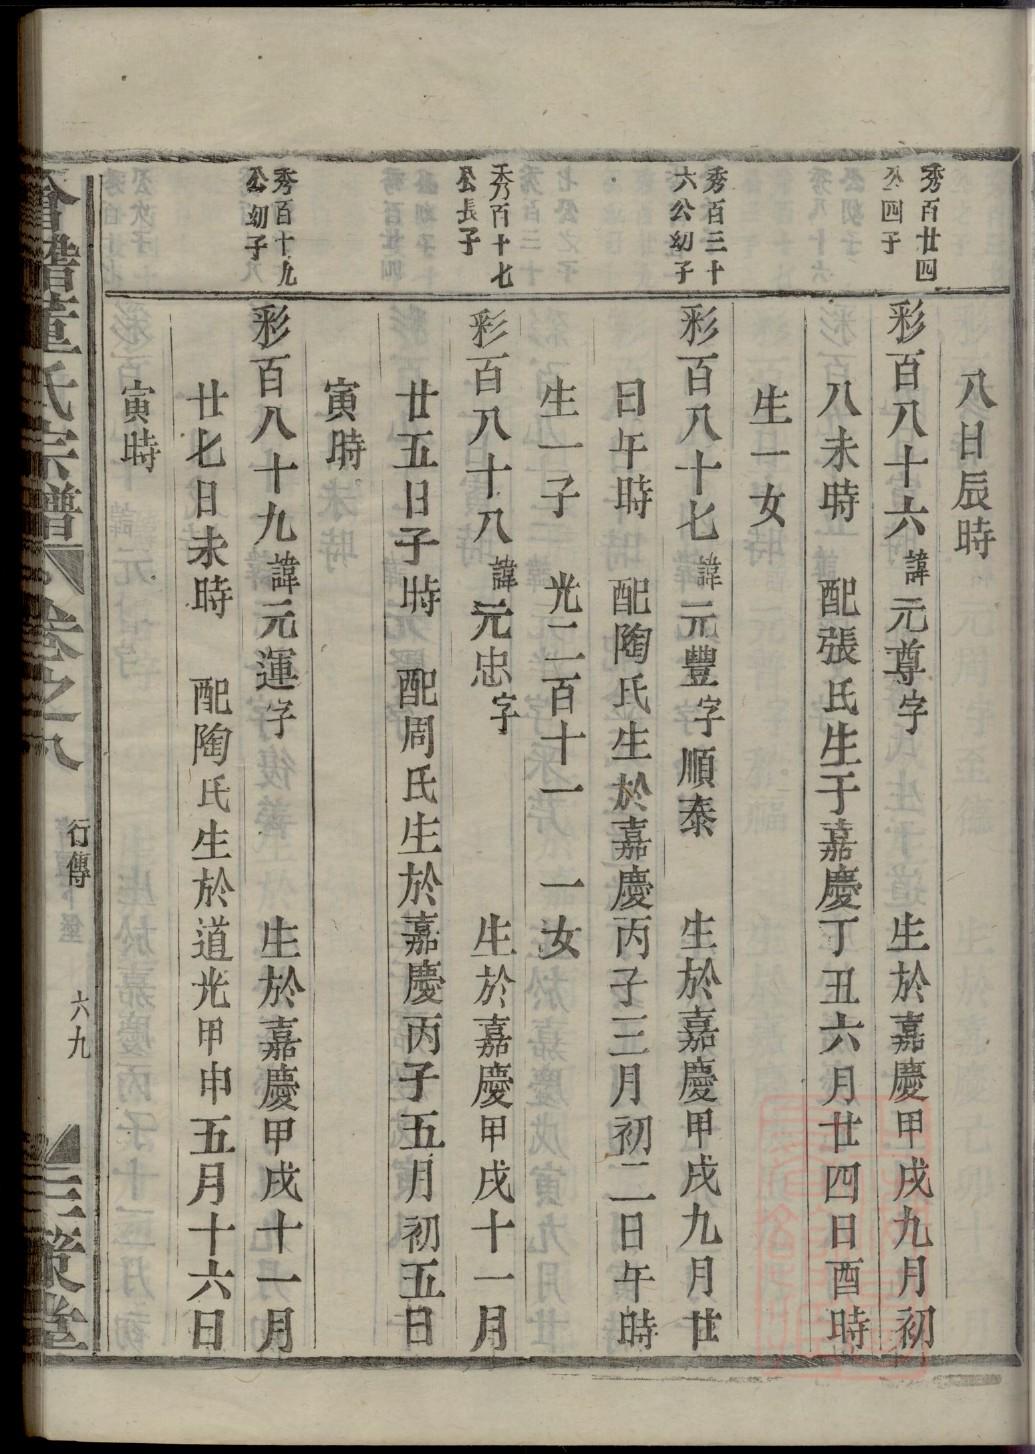 八日辰時
秀百廿四
公四子
彩百八十六諱元尊字　生於嘉慶甲戌九月初
八未時　配張氏生于嘉慶丁丑六月廿四日酉時
生一女
秀百三十
六公幼子
彩百八十七諱元豐字順泰　生於嘉慶甲戌九月廿
日午時　配陶氏生於嘉慶丙子三月初二日午時
生一子　光二百十一　一女
秀百十七
公長子
彩百八十八諱元忠字　生於嘉慶甲戌十一月
廿五日子時　配周氏生於嘉慶丙子五月初五日
寅時
秀百十九
公幼子
彩百八十九諱元運字　生於嘉慶甲戌十一月
廿七日未時　配陶氏生於道光甲申五月十六日
寅時
會稽董氏宗譜　卷之八　行傳　六九　三策堂